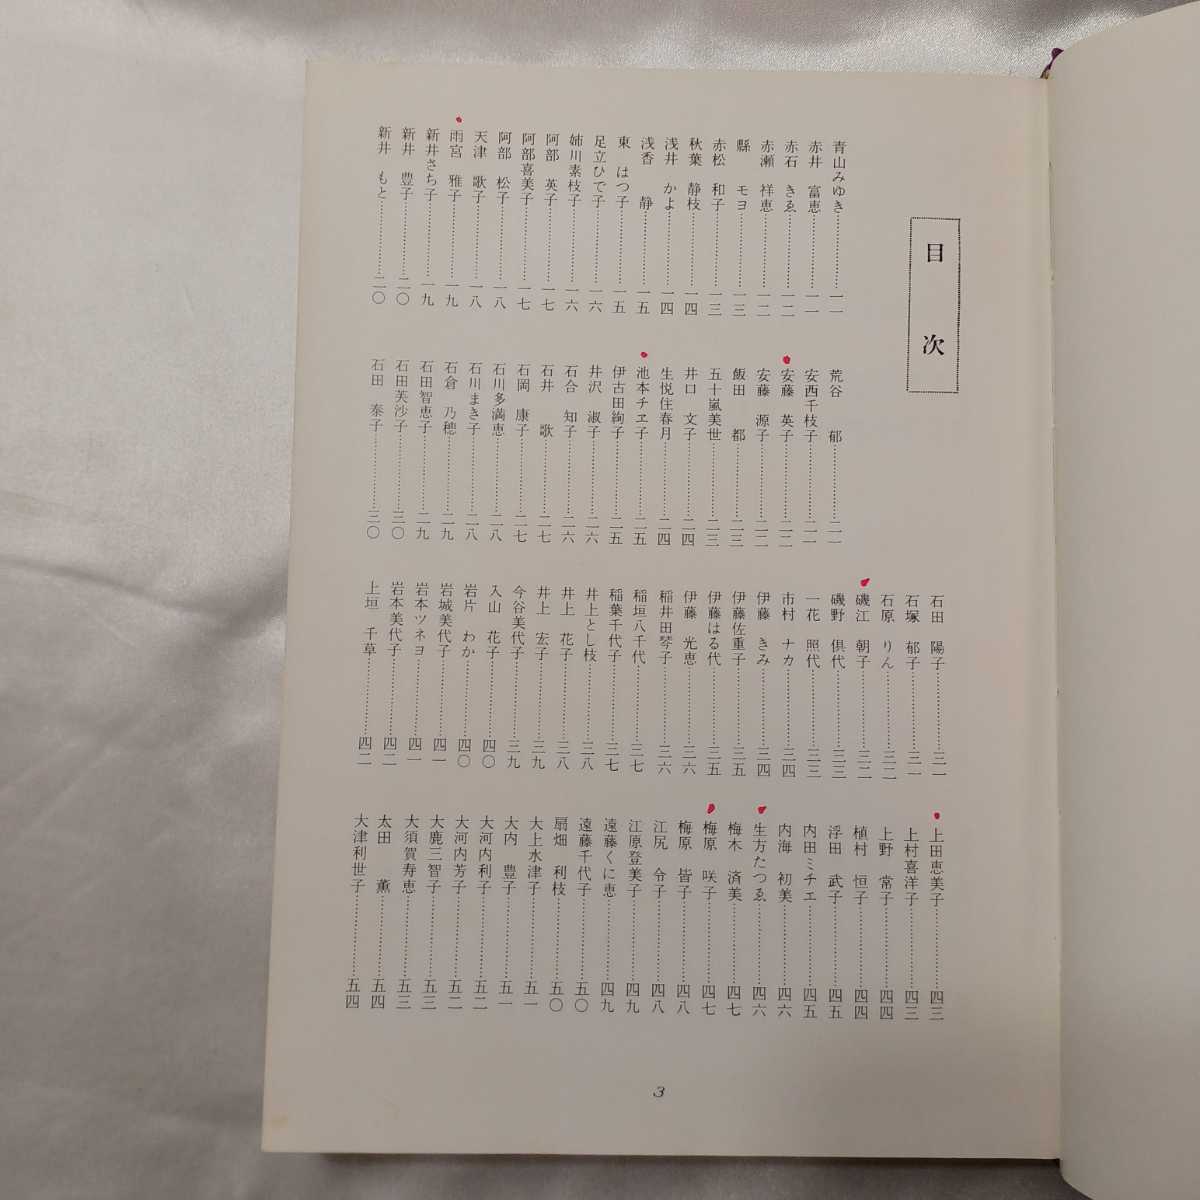 目次
青山みゆき………一一
赤井　富恵………一一
赤石　きゑ………一二
赤瀬　祥恵………一二
縣　　モヨ………一三
赤松　和子………一三
秋葉　静枝………一四
浅井　かよ………一四
浅香　　静………一五
東　はつ子………一五
足立ひで子………一六
姉川素枝子………一六
阿部　英子………一七
阿部喜美子………一七
阿部　松子………一八
天津　歌子………一八
雨宮　雅子………一九
新井さち子………一九
新井　豊子………二〇
新井　もと………二〇
荒谷　　郁………二一
安西千枝子………二一
安藤　英子………二二
安藤　源子………二二
飯田　　都………二三
五十嵐美世………二三
井口　文子………二四
生悦住春月………二四
池本チヱ子………二五
伊古田絢子………二五
井沢　淑子………二六
石合　知子………二六
石井　　歌………二七
石岡　康子………二七
石川多満恵………二八
石川まき子………二八
石倉　乃穂………二九
石田智恵子………二九
石田美沙子………三〇
石田　泰子………三〇
石田　陽子………三一
石塚　郁子………三一
石原　りん………三二
磯江　朝子………三二
磯野　倶代………三三
一花　照代………三三
市村　ナカ………三四
伊藤　きみ………三四
伊藤佐重子………三五
伊藤はる代………三五
伊藤　光恵………三六
稲井田琴子………三六
稲垣八千代………三七
稲葉千代子………三七
井上とし枝………三八
井上　花子………三八
井上　宏子………三九
今谷美代子………三九
入山　花子………四〇
岩片　わか………四〇
岩城美代子………四一
岩本ツネヨ………四一
岩本美代子………四二
上垣　千草………四二
上田恵美子………四三
上村喜洋子………四三
上野　常子………四四
植村　恒子………四四
浮田　武子………四五
内田ミチエ………四五
内海　初美………四六
生方たつゑ………四六
梅木　済美………四七
梅原　咲子………四七
梅原　皆子………四八
江尻　令子………四八
江原登美子………四九
遠藤くに恵………四九
遠藤千代子………五〇
扇畑　利枝………五〇
大上水津子………五一
大内　豊子………五一
大河内利子………五二
大河内芳子………五二
大鹿三智子………五三
大須賀寿恵………五三
太田　　薫………五四
大津利世子………五四
3